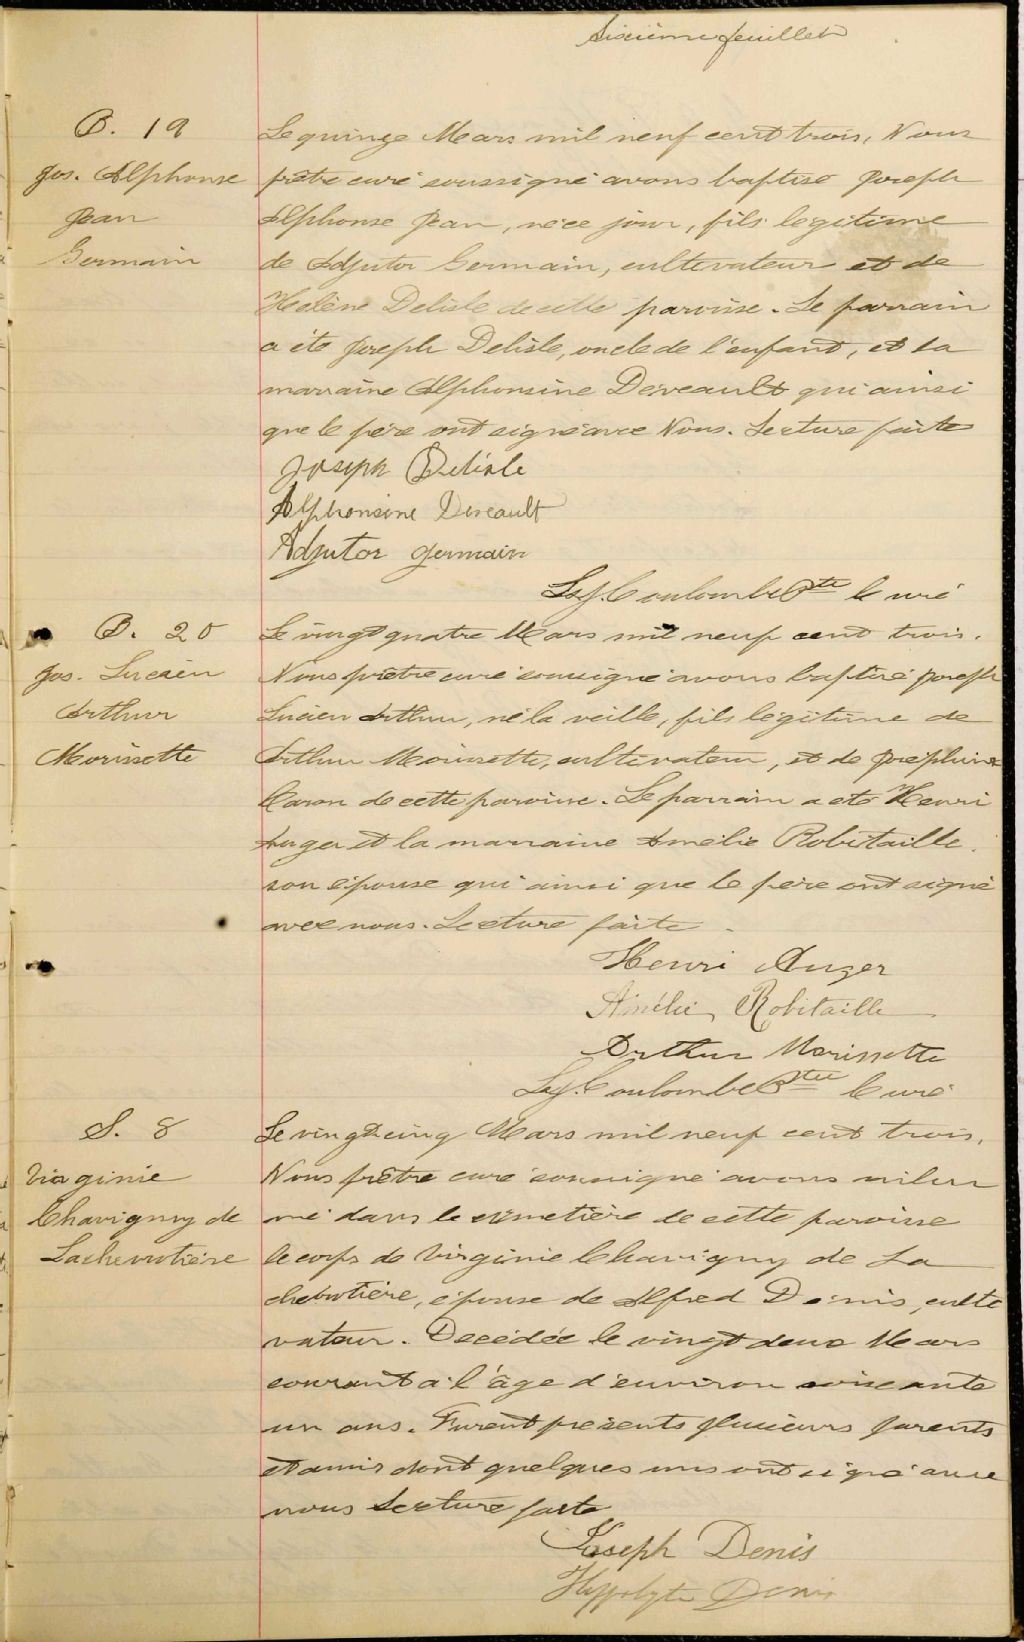 Sixième feuillet
B. 19
Jos. Alphonse
Jean
Germain
Le quinze Mars mil neuf cent trois, Nous
prêtre curé soussigné avons baptisé Joseph
Alphonse Jean, né ce jour, fils légitime
de Adjutor Germain, cultivateur et de
Hélène Delisle de cette paroisse. Le parrain
a été Joseph Delisle, oncle de l'enfant, et la
marraine Alphonsine Deveault qui ainsi
que le père ont signé avec Nous. Lecture faite
Joseph Delisle
Alphonsine Deveault
Adjutor Germain
Coulombe Ptre Curé
B. 20
Jos. Lucien
Arthur
Morissette
Le vingt quatre Mars mil neuf cent trois.
Nous prêtre curé soussigné avons baptisé Joseph
Lucien Arthur, né la veille, fils légitime de
Arthur Morissette, cultivateur, et de Joséphine
Caron de cette paroisse. Le parrain a été Henri
Auger et la marraine Amélie Robitaille
son épouse qui ainsi que le père ont signé
avec nous. Lecture faite
Henri Auger
Amélie Robitaille
Arthur Morissette
Coulombe Ptre Curé
S. 8
Virginie
Chavigny de
Lachevrotière
Le vingt cinq Mars mil neuf cent trois,
Nous prêtre curé soussigné avons inhu
mé dans le cimetière de cette paroisse
le corps de Virginie Chavigny de La
chevrotière, épouse de Alfred Denis, culti
vateur. Décédée le vingt deux Mars
courant à l'âge d'environ soixante
un ans. Furent présents plusieurs parents
et amis dont quelques uns ont signé avec
nous Lecture faite
Joseph Denis
Hyppolyte Denis